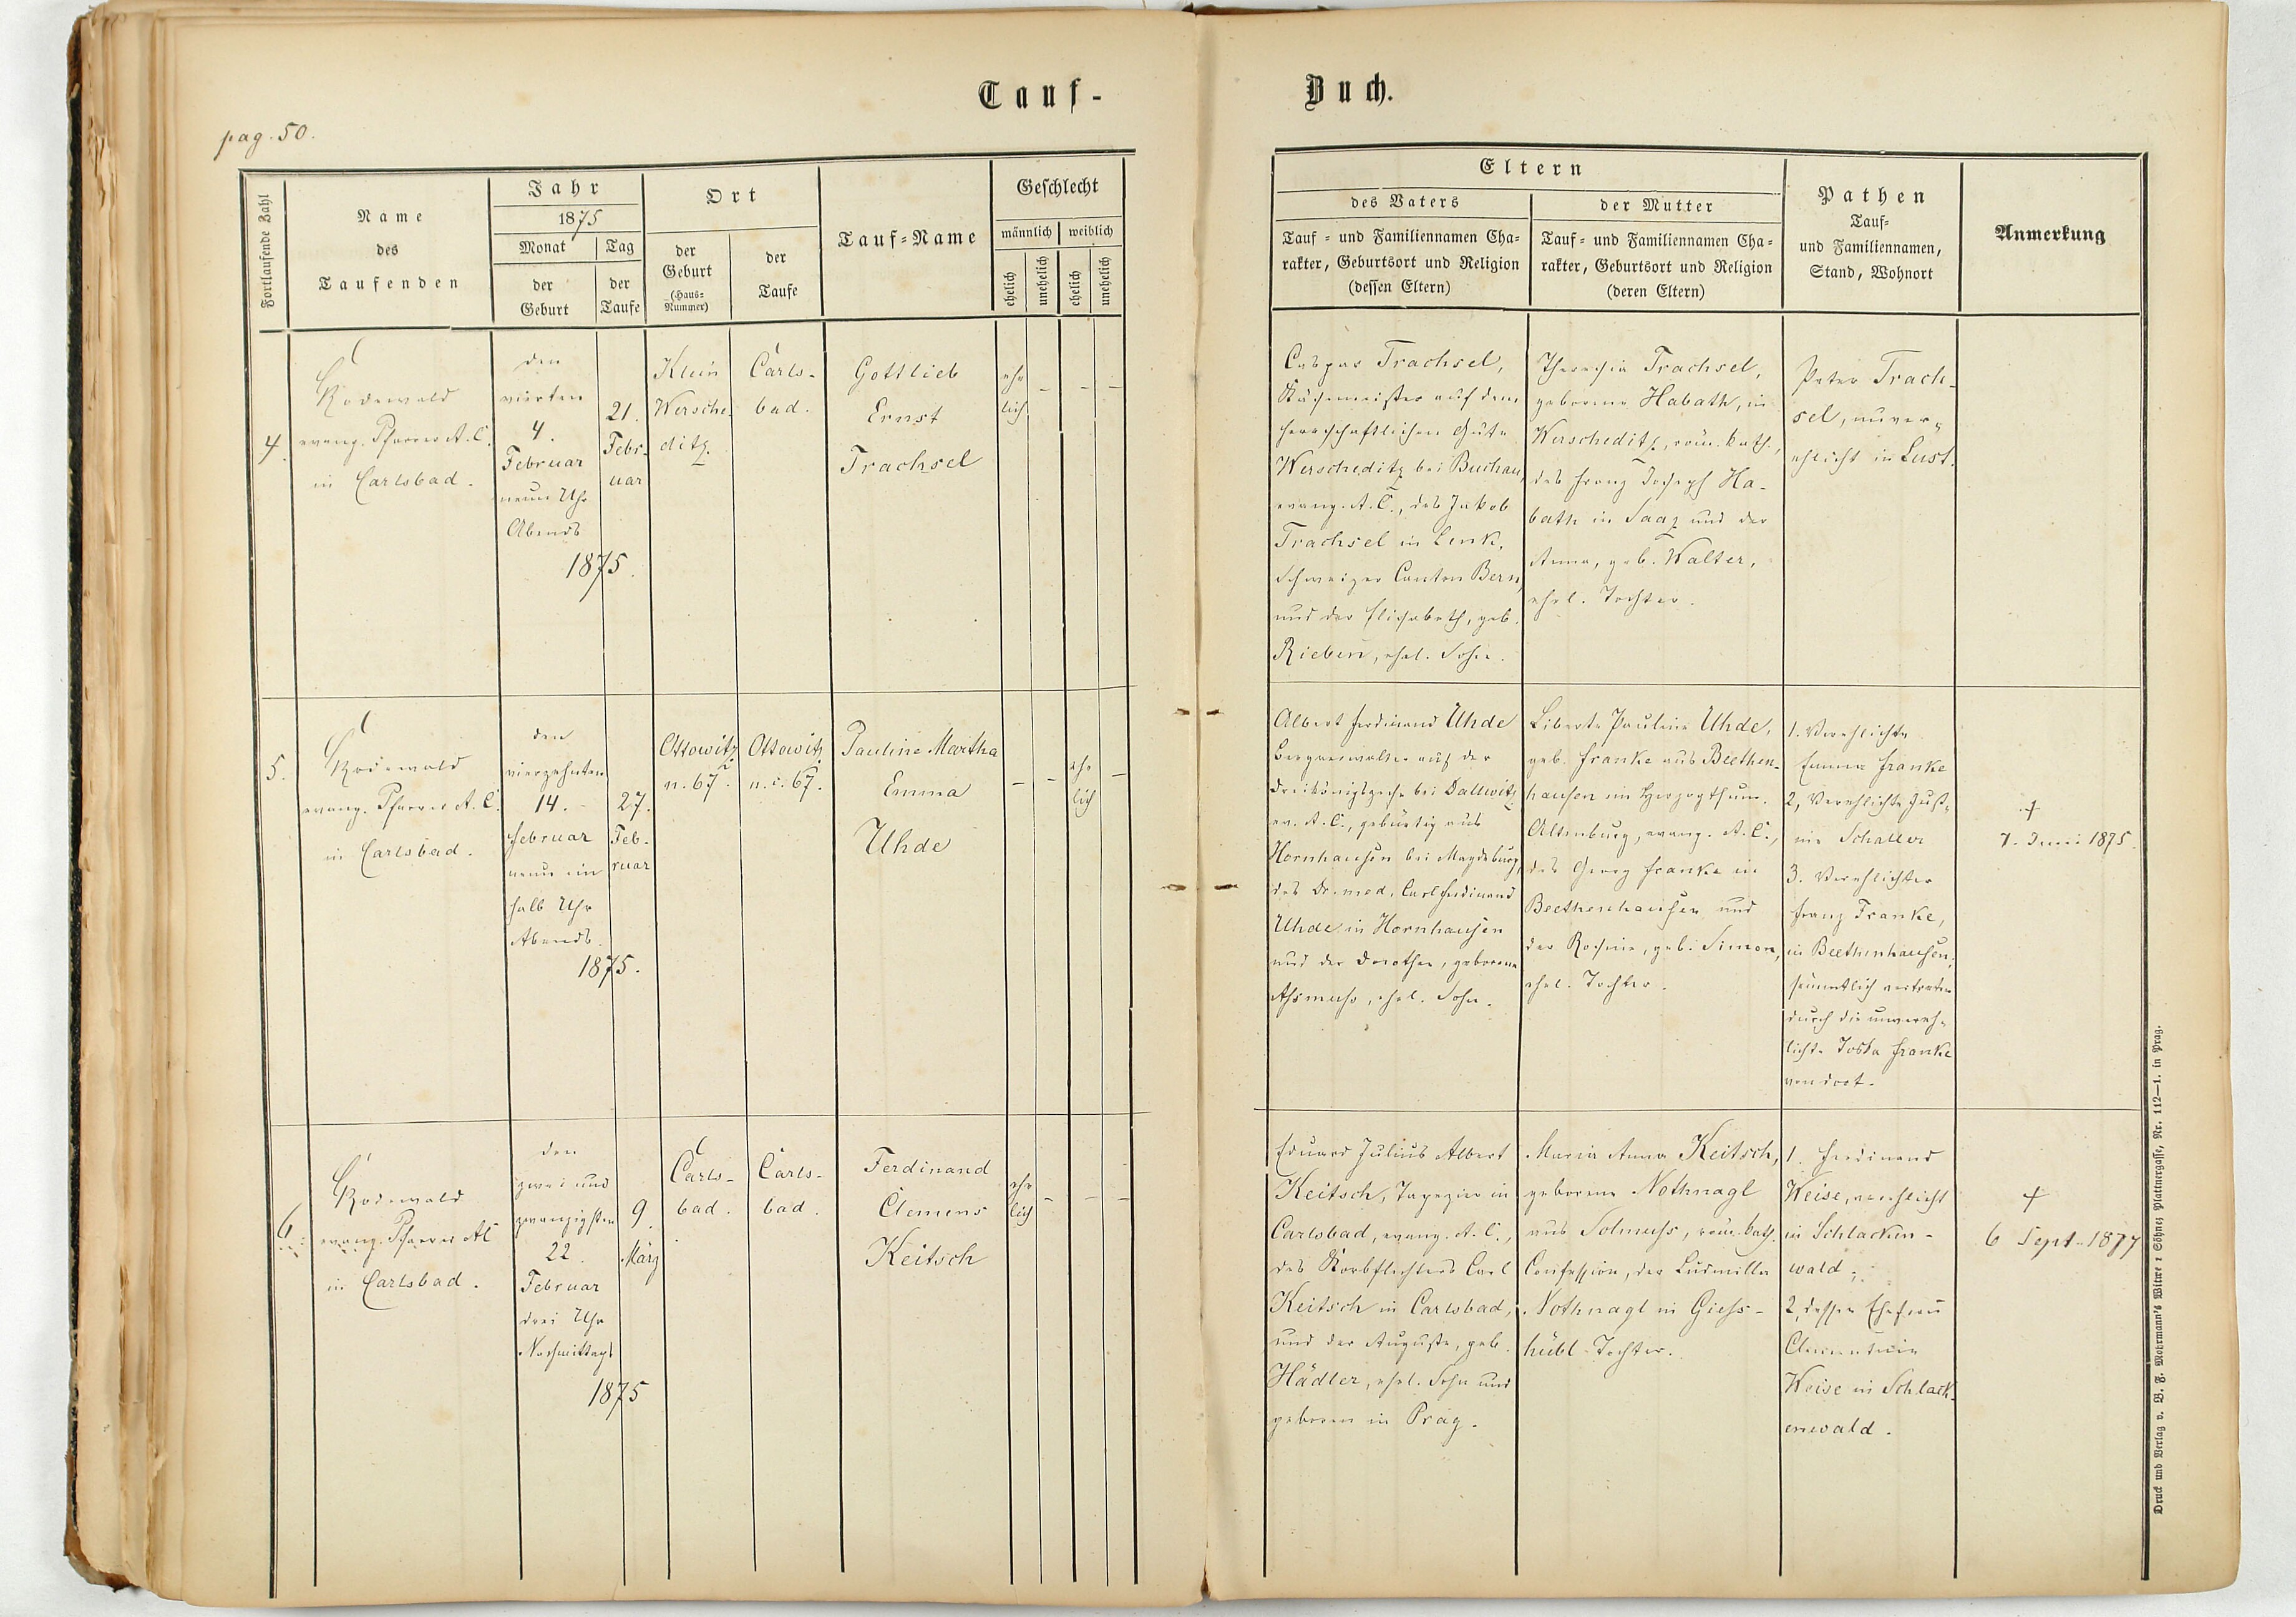 Tauf-
Buch.
pag. 50.
Fortlaufende Zahl
Name
des
Taufenden
Jahr
1875
Monat
Tag
der
Geburt
der
Taufe
Ort
der
Geburt
(Haus-
Nummer)
der
Taufe
Tauf-Name
Geschlecht
männlich
weiblich
ehelich
unehelich
ehelich
unehelich
Eltern
des Vaters
Tauf- und Familiennamen Cha-
rakter, Geburtsort und Religion
(dessen Eltern)
der Mutter
Tauf- und Familiennamen Cha-
rakter, Geburtsort und Religion
(deren Eltern)
Pathen
Tauf-
und Familiennamen,
Stand, Wohnort
Anmerkung
4.
Rodewald
evang. Pfarrer A. C.
in Carlsbad.
den
vierten
4.
Februar
neun Uhr
Abends
1875.
21.
Febr-
uar
Klein
Wersche-
ditz.
Carls-
bad.
Gottlieb
Ernst
Trachsel
ehe
lich
-
-
-
Caspar Trachsel,
Käsemeister auf dem
herrschaftlichen Gute
Werscheditz bei Buchau,
evang. A. C., des Jakob
Trachsel in Lenk,
Schweizer Canton Bern,
und der Elisabeth, geb.
Rieben, ehel. Sohn.
Theresia Trachsel,
geborene Habath, in
Werscheditz, röm. kath.,
des Franz Joseph Ha-
bath in Saaz und der
Anna, geb. Walter,
ehel. Tochter.
Peter Trach-
sel, unver-
ehlicht in Lust.
5.
Rodewald
evang. Pfarrer A. C.
in Carlsbad.
den
vierzehnten
14.
Februar
neun ein
halb Uhr
Abends.
1875.
27.
Feb-
ruar
Ottowitz
n. 67.
Ottowitz
n. c. 67.
Pauline Martha
Emma
Uhde
-
-
ehe
lich
-
Albert Ferdinand Uhde
Bergverwalter auf der
Dreikönigszeche bei Dallwitz
ev. A. C., gebürtig aus
Hornhausen bei Magdeburg,
des Dr. med. Carl Ferdinand
Uhde in Hornhausen
und der Dorothea, geborene
Assmuss, ehel. Sohn.
Liberta Pauline Uhde,
geb. Franke aus Beethen-
hausen im Herzogthum
Altenburg, evang. A. C.,
des Georg Franke in
Beethenhausen und
der Rosine, geb. Simon,
ehel. Tochter.
1. Verehlichte
Emma Franke
2. Verehlichte Just-
ine Schaller
3. Verehlichter
Franz Franke,
in Beethenhausen;
sämmtlich vertreten
durch die unvereh-
lichte Toska Franke
von dort.
†
7. Juni 1875.
6.
Rodewald
evang. Pfarrer AC
in Carlsbad.
den
zwei und
zwanzigsten
22.
Februar
drei Uhr
Nachmittags
1875
9.
März
Carls-
bad.
Carls-
bad.
Ferdinand
Clemens
Keitsch
ehe
lich
-
-
-
Eduard Julius Albert
Keitsch, Tapezier in
Carlsbad, evang. A. C.,
des Korbflechters Carl
Keitsch in Carlsbad,
und der Auguste, geb.
Hädler, ehel. Sohn und
geboren in Prag.
Maria Anna Keitsch,
geborene Nothnagl
aus Solmuss, röm. kath.
Confession, der Ludmilla
Nothnagl in Giess-
hübl Tochter.
1. Ferdinand
Weise, verehlicht
in Schlacken-
wald;
2. dessen Ehefrau
Clementine
Weise in Schlack-
enwald.
†
6 Sept. 1877
Druck und Verlag v. B. F. Mohrmann's Witwe & Söhne, Plattnergasse, Nr. 112—1. in Prag.